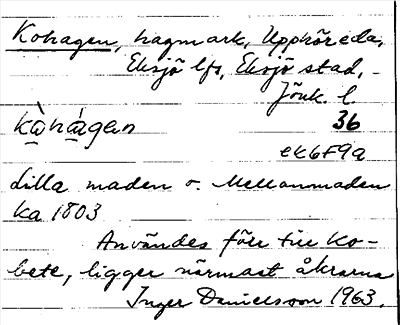 Kohagen, hagmark, Upphöreda,
Eksjö lfs, Eksjö stad,
Jönk. l.
kòhágen 36
ek6F9a
Lilla maden o. Mellanmaden
ka 1803
Användes förr till ko-
bete, ligger närmast åkrarna
Inger Danielsson 1963.